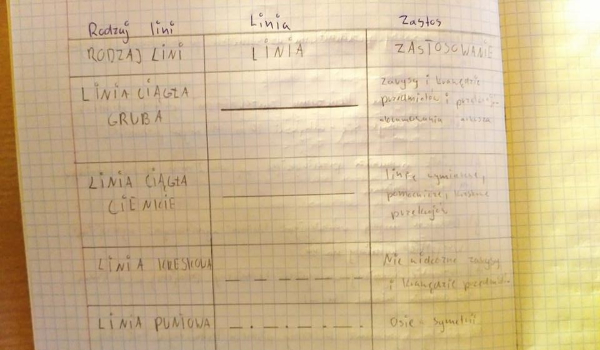 Rodzaj lini Linia Zastos
RODZAJ LINI LINIA ZASTOSOWANIE
LINIA CIĄGŁA
GRUBA
zarysy i krawędzie
przedmiotów i
LINIA CIĄGŁA
CIENKIE
linie wymiarowe,
pomocnicze,
przekrojów
LINIA KRESKOWA
Nie widoczne zarysy
i krawędzie
LINIA PUNTOWA
Osie - symetrii